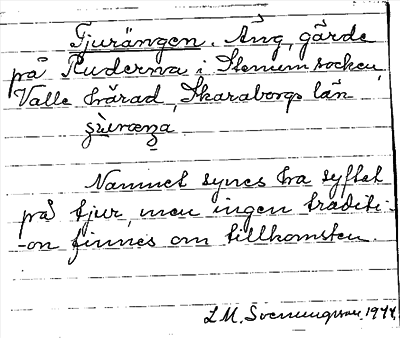 Tjurängen. Äng, gärde
på Ruderna i Stenum socken
Valle härad, Skaraborgs län
Namnet synes ha syftat
på tjur, men ingen traditi-
-on finnes om tillkomsten.
L M. Svenungsson. 1944.